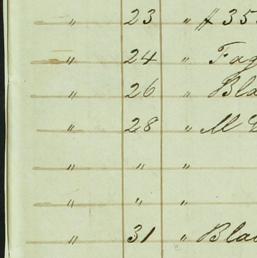 " 23 " # 35
" 24 "
" 26 " Bla
" 28 " M
" " "
" " "
" 31 " Blac